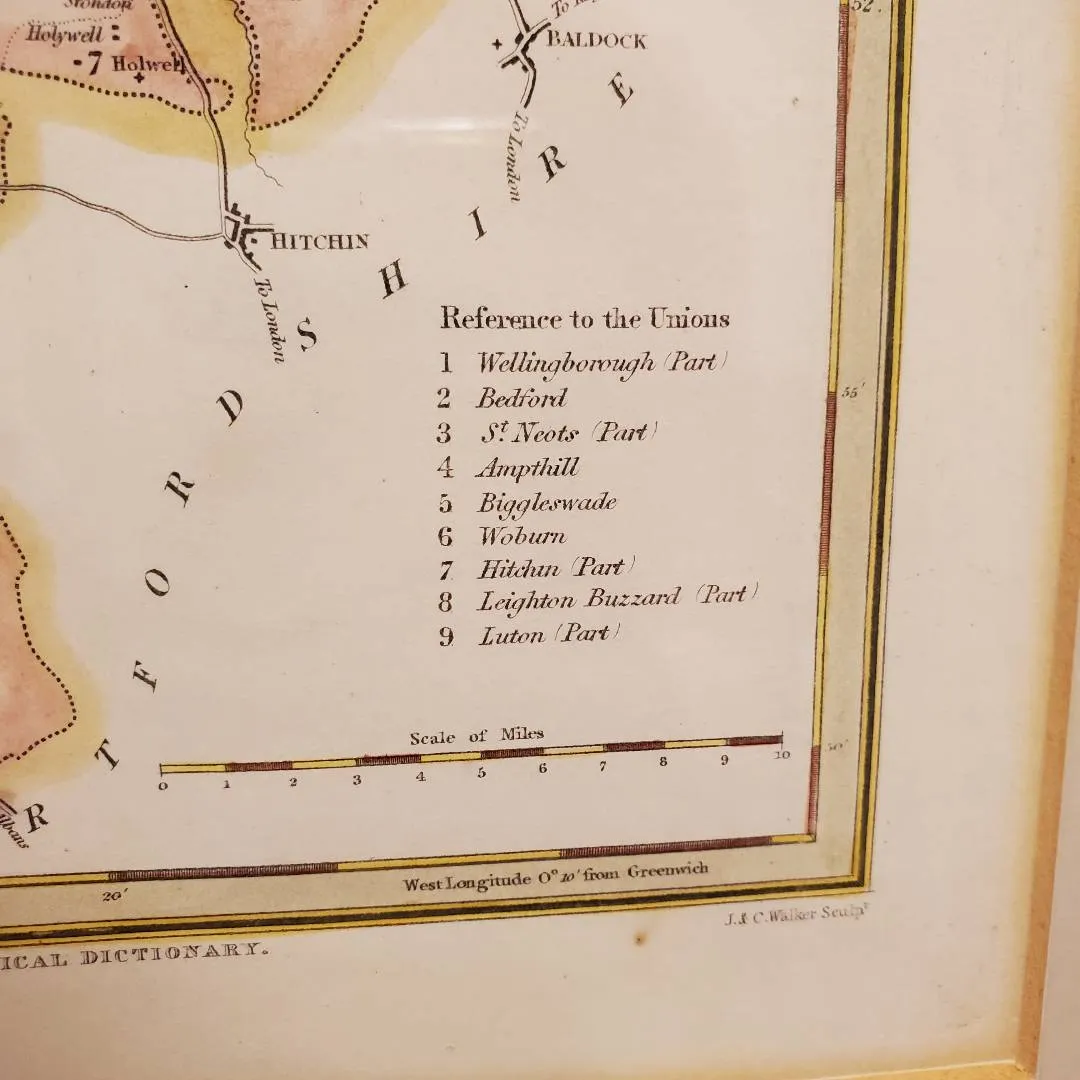 Stondon
Holywell
7 Holwell
BALDOCK
To London
HITCHIN
To London
R T F O R D S H I R E
52'.
55'
50'
Reference to the Unions
1 Wellingborough (Part)
2 Bedford
3 St. Neots (Part)
4 Ampthill
5 Biggleswade
6 Woburn
7 Hitchin (Part)
8 Leighton Buzzard (Part)
9 Luton (Part)
Scale of Miles
0 1 2 3 4 5 6 7 8 9 10
20'
West Longitude 0° 10' from Greenwich
J. & C. Walker Sculpt
ICAL DICTIONARY.